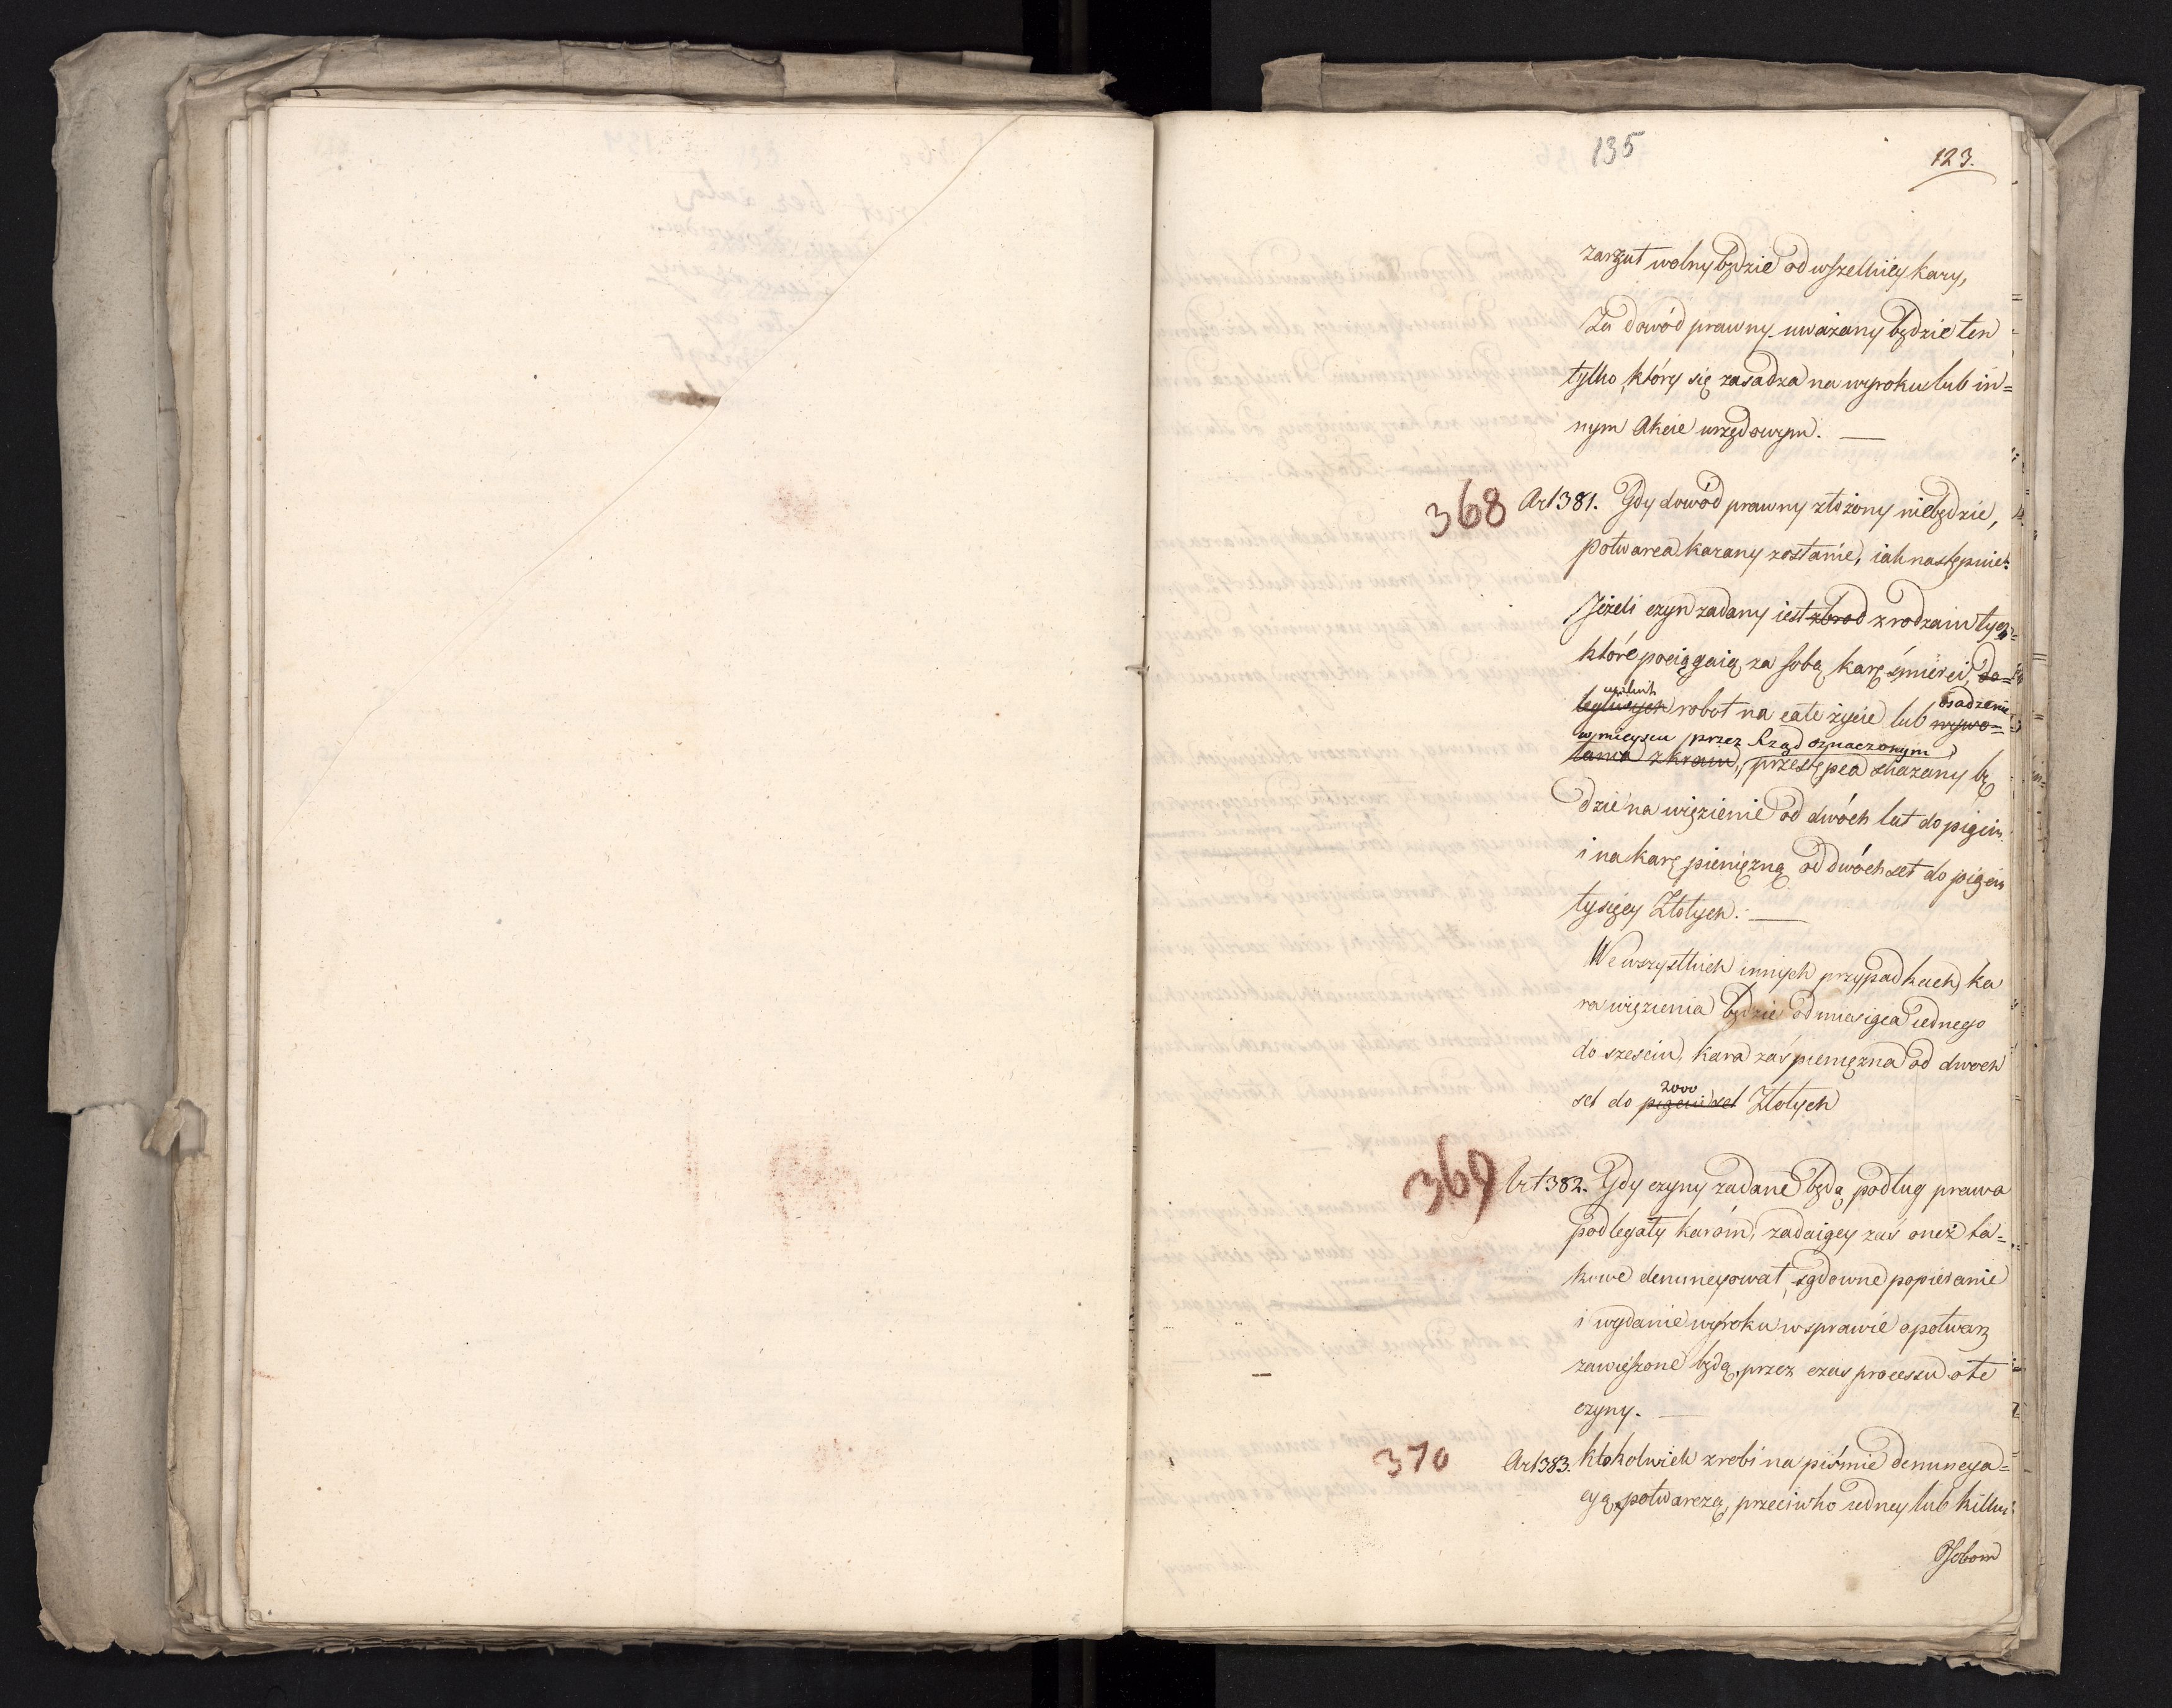 135
123.
zarzut wolny będzie od wszelkiey kary,
Za dowód prawny uważany będzie ten
tylko, który się zasadza na wyroku lub in=
nym Akcie urzędowym. —
368 Art 381. Gdy dowód prawny złożony niebędzie,
potwarca karany zostanie, iak następnie:
Jeżeli czyn zadany iest zbrod z rodzaiu tych
które pociągaią za sobą karę śmierci, do=
ciężkich osadzenie
robot na całe życie lub wywo=
w mieyscu przez Rząd oznaczonym
łania z kraiu, przestępca skazany bę
dzie na więzienie od dwóch lat do pięciu
i na karę pieniężną od dwóchset do pięciu
tysięcy Złotych. —
We wszystkich innych przypadkach, ka
ra więzienia będzie od miesiąca iednego
do sześciu, kara zaś pieniężna od dwoch
2000
set do pięciu set Złotych
369 Art 382. Gdy czyny zadane będą podług prawa
podlegały karom, zadaiący zaś oneż ta=
kowe denuncyował, sądowne popieranie
i wydanie wyroku w sprawie o potwarz
zawieszone będą, przez czas processu o te
czyny. —
370 Art 383. Ktokolwiek zrobi na piśmie denuncya=
cyą potwarczą, przeciwko iedney lub kilku
Osobom